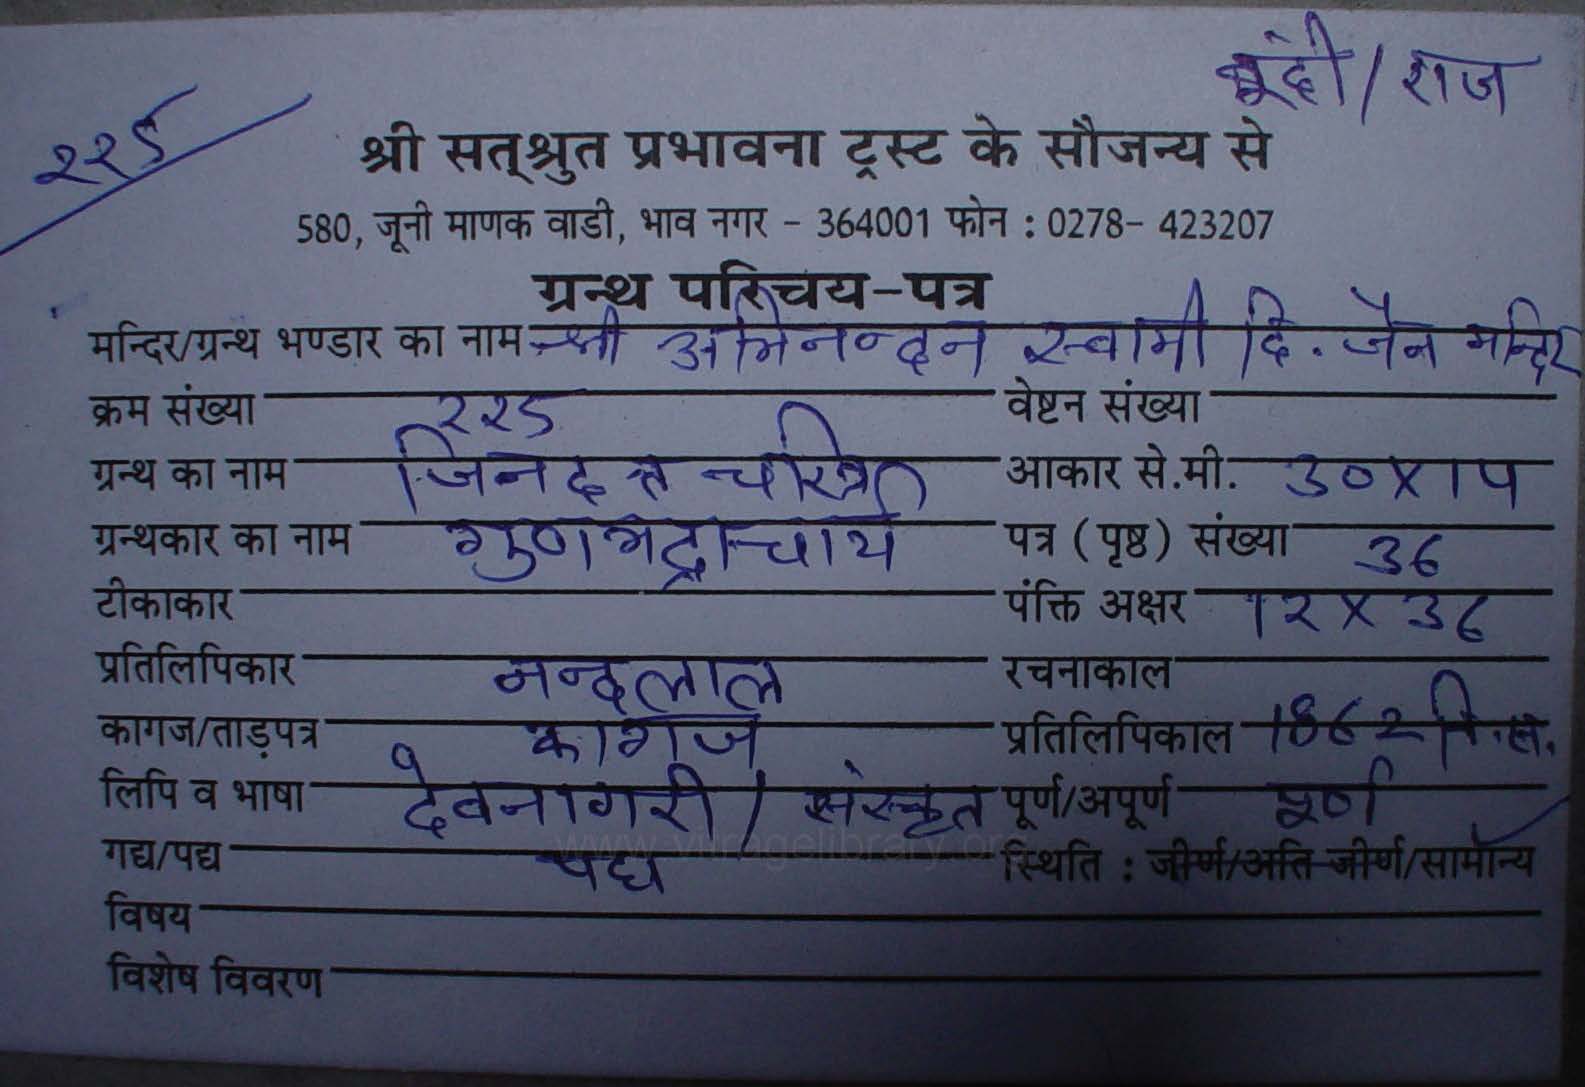 बूंदी / राज
२२९
श्री सत्श्रुत प्रभावना ट्रस्ट के सौजन्य से
580, जूनी माणक वाडी, भाव नगर - 364001 फोन : 0278- 423207
ग्रन्थ परिचय-पत्र
मन्दिर/ग्रन्थ भण्डार का नाम श्री अभिनन्दन स्वामी दि. जैन मन्दिर
क्रम संख्या २२९ वेष्टन संख्या
ग्रन्थ का नाम जिनदत्त चरित्र आकार से.मी. 30 X 14
ग्रन्थकार का नाम गुणभद्राचार्य पत्र (पृष्ठ) संख्या 36
टीकाकार पंक्ति अक्षर 12 X 36
प्रतिलिपिकार नन्दलाल रचनाकाल
कागज/ताड़पत्र कागज प्रतिलिपिकाल 1862 वि.सं.
लिपि व भाषा देवनागरी / संस्कृत पूर्ण/अपूर्ण पूर्ण
गद्य/पद्य पद्य स्थिति : जीर्ण/अति जीर्ण/सामान्य
विषय
विशेष विवरण
www.vitragelibrary.org